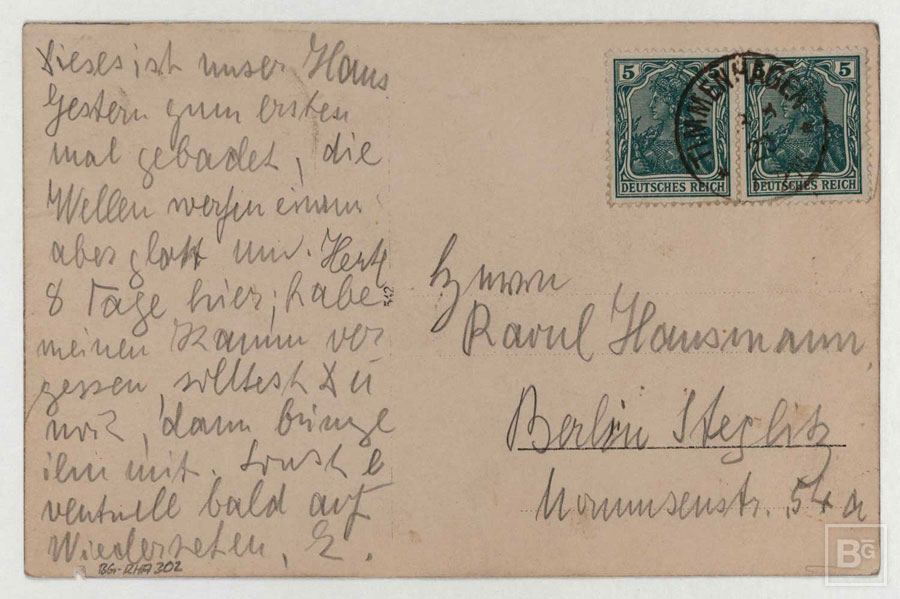 Dieses ist unser Haus
Gestern zum ersten
mal gebadet, die
Wellen werfen einem
aber glatt um. Heute
8 Tage hier, habe
meinen Kamm ver
gessen, solltest Du
noch, dann bringe
ihn mit. Sonst e
ventuell bald auf
Wiedersehen,
BG-RHA 302
512
5 5
DEUTSCHES REICH DEUTSCHES REICH
TIMMENHAGEN
Herrn
Raoul Hausmann
Berlin Steglitz
Mommsenstr. 54 a
BG